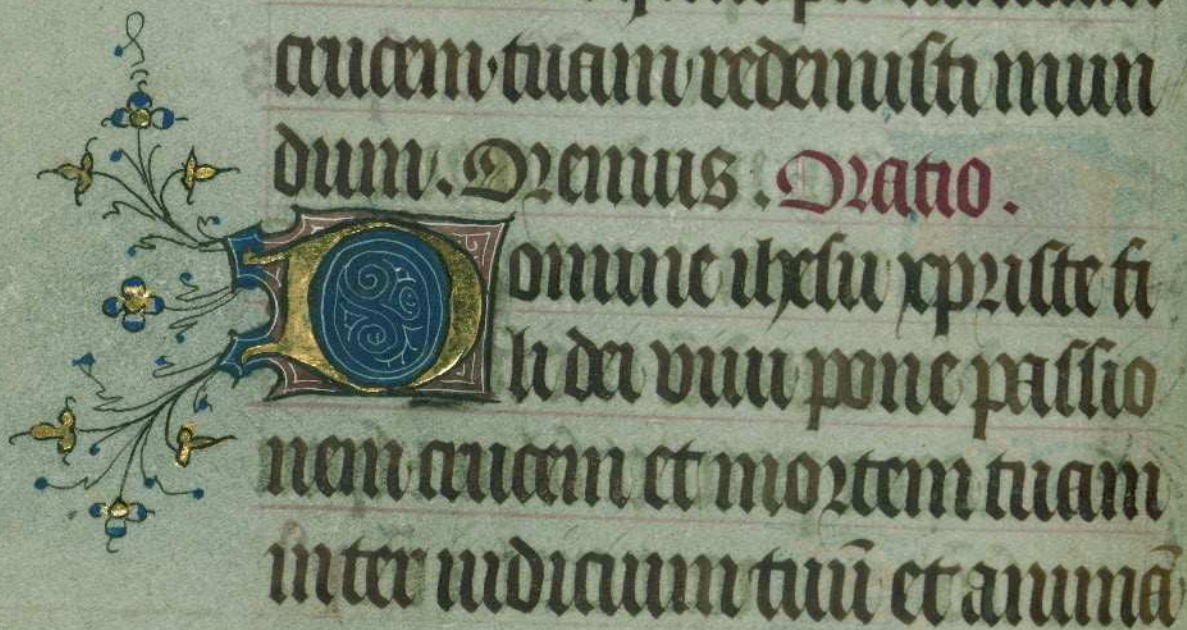 crucem tuam redemisti mun
dum. Oremus. Oratio.
Domine ihesu xpriste fi
li dei viui pone passio
nem crucem et mortem tuam
inter iudicium tuū et animā